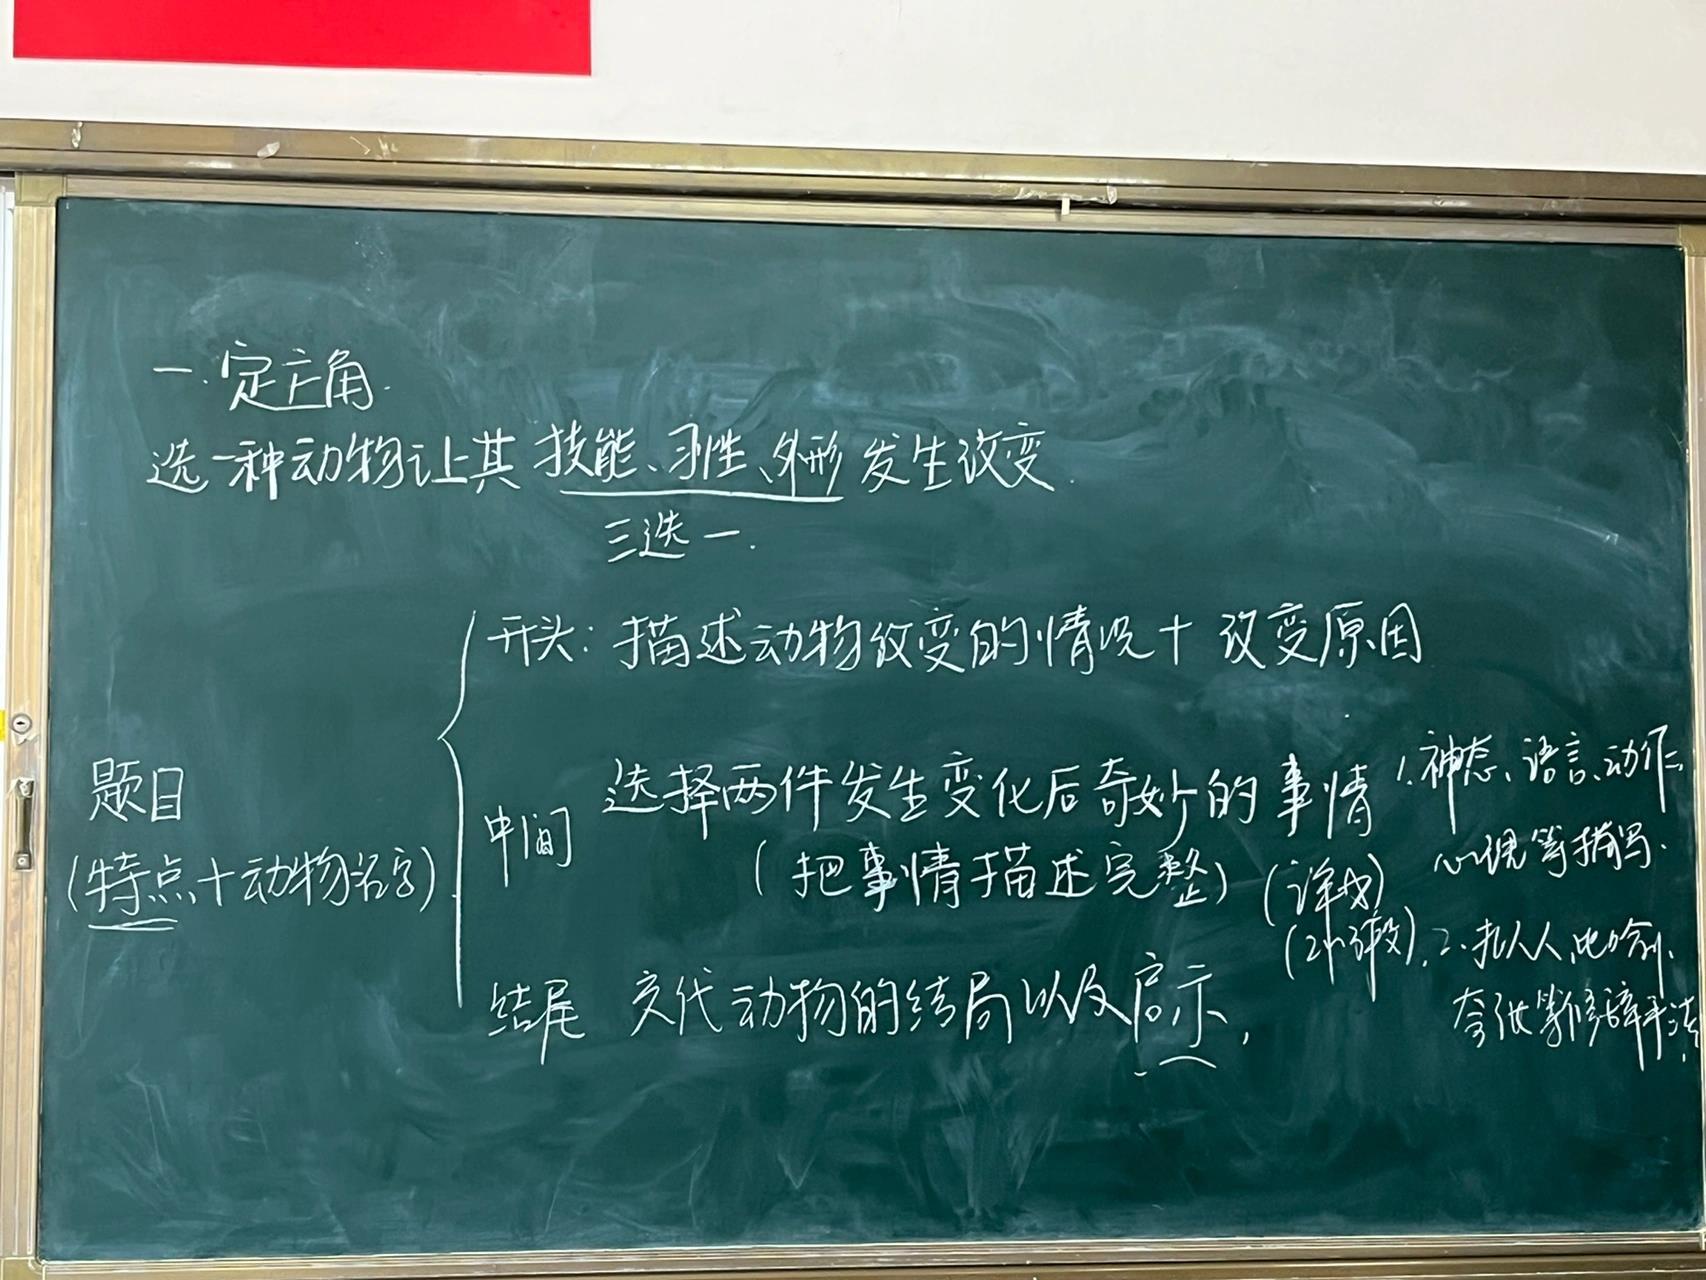 一.定主角.
选一种动物让其技能、习性、外形发生改变.
三选一.
题目
(特点+动物名字).
开头：描述动物改变的情况+改变原因
中间 选择两件发生变化后奇妙的事情
(把事情描述完整) (详写)
1.神态、语言、动作、
心理等描写.
二.拟人、比喻、
夸张等修辞手法
结尾 交代动物的结局以及启示.